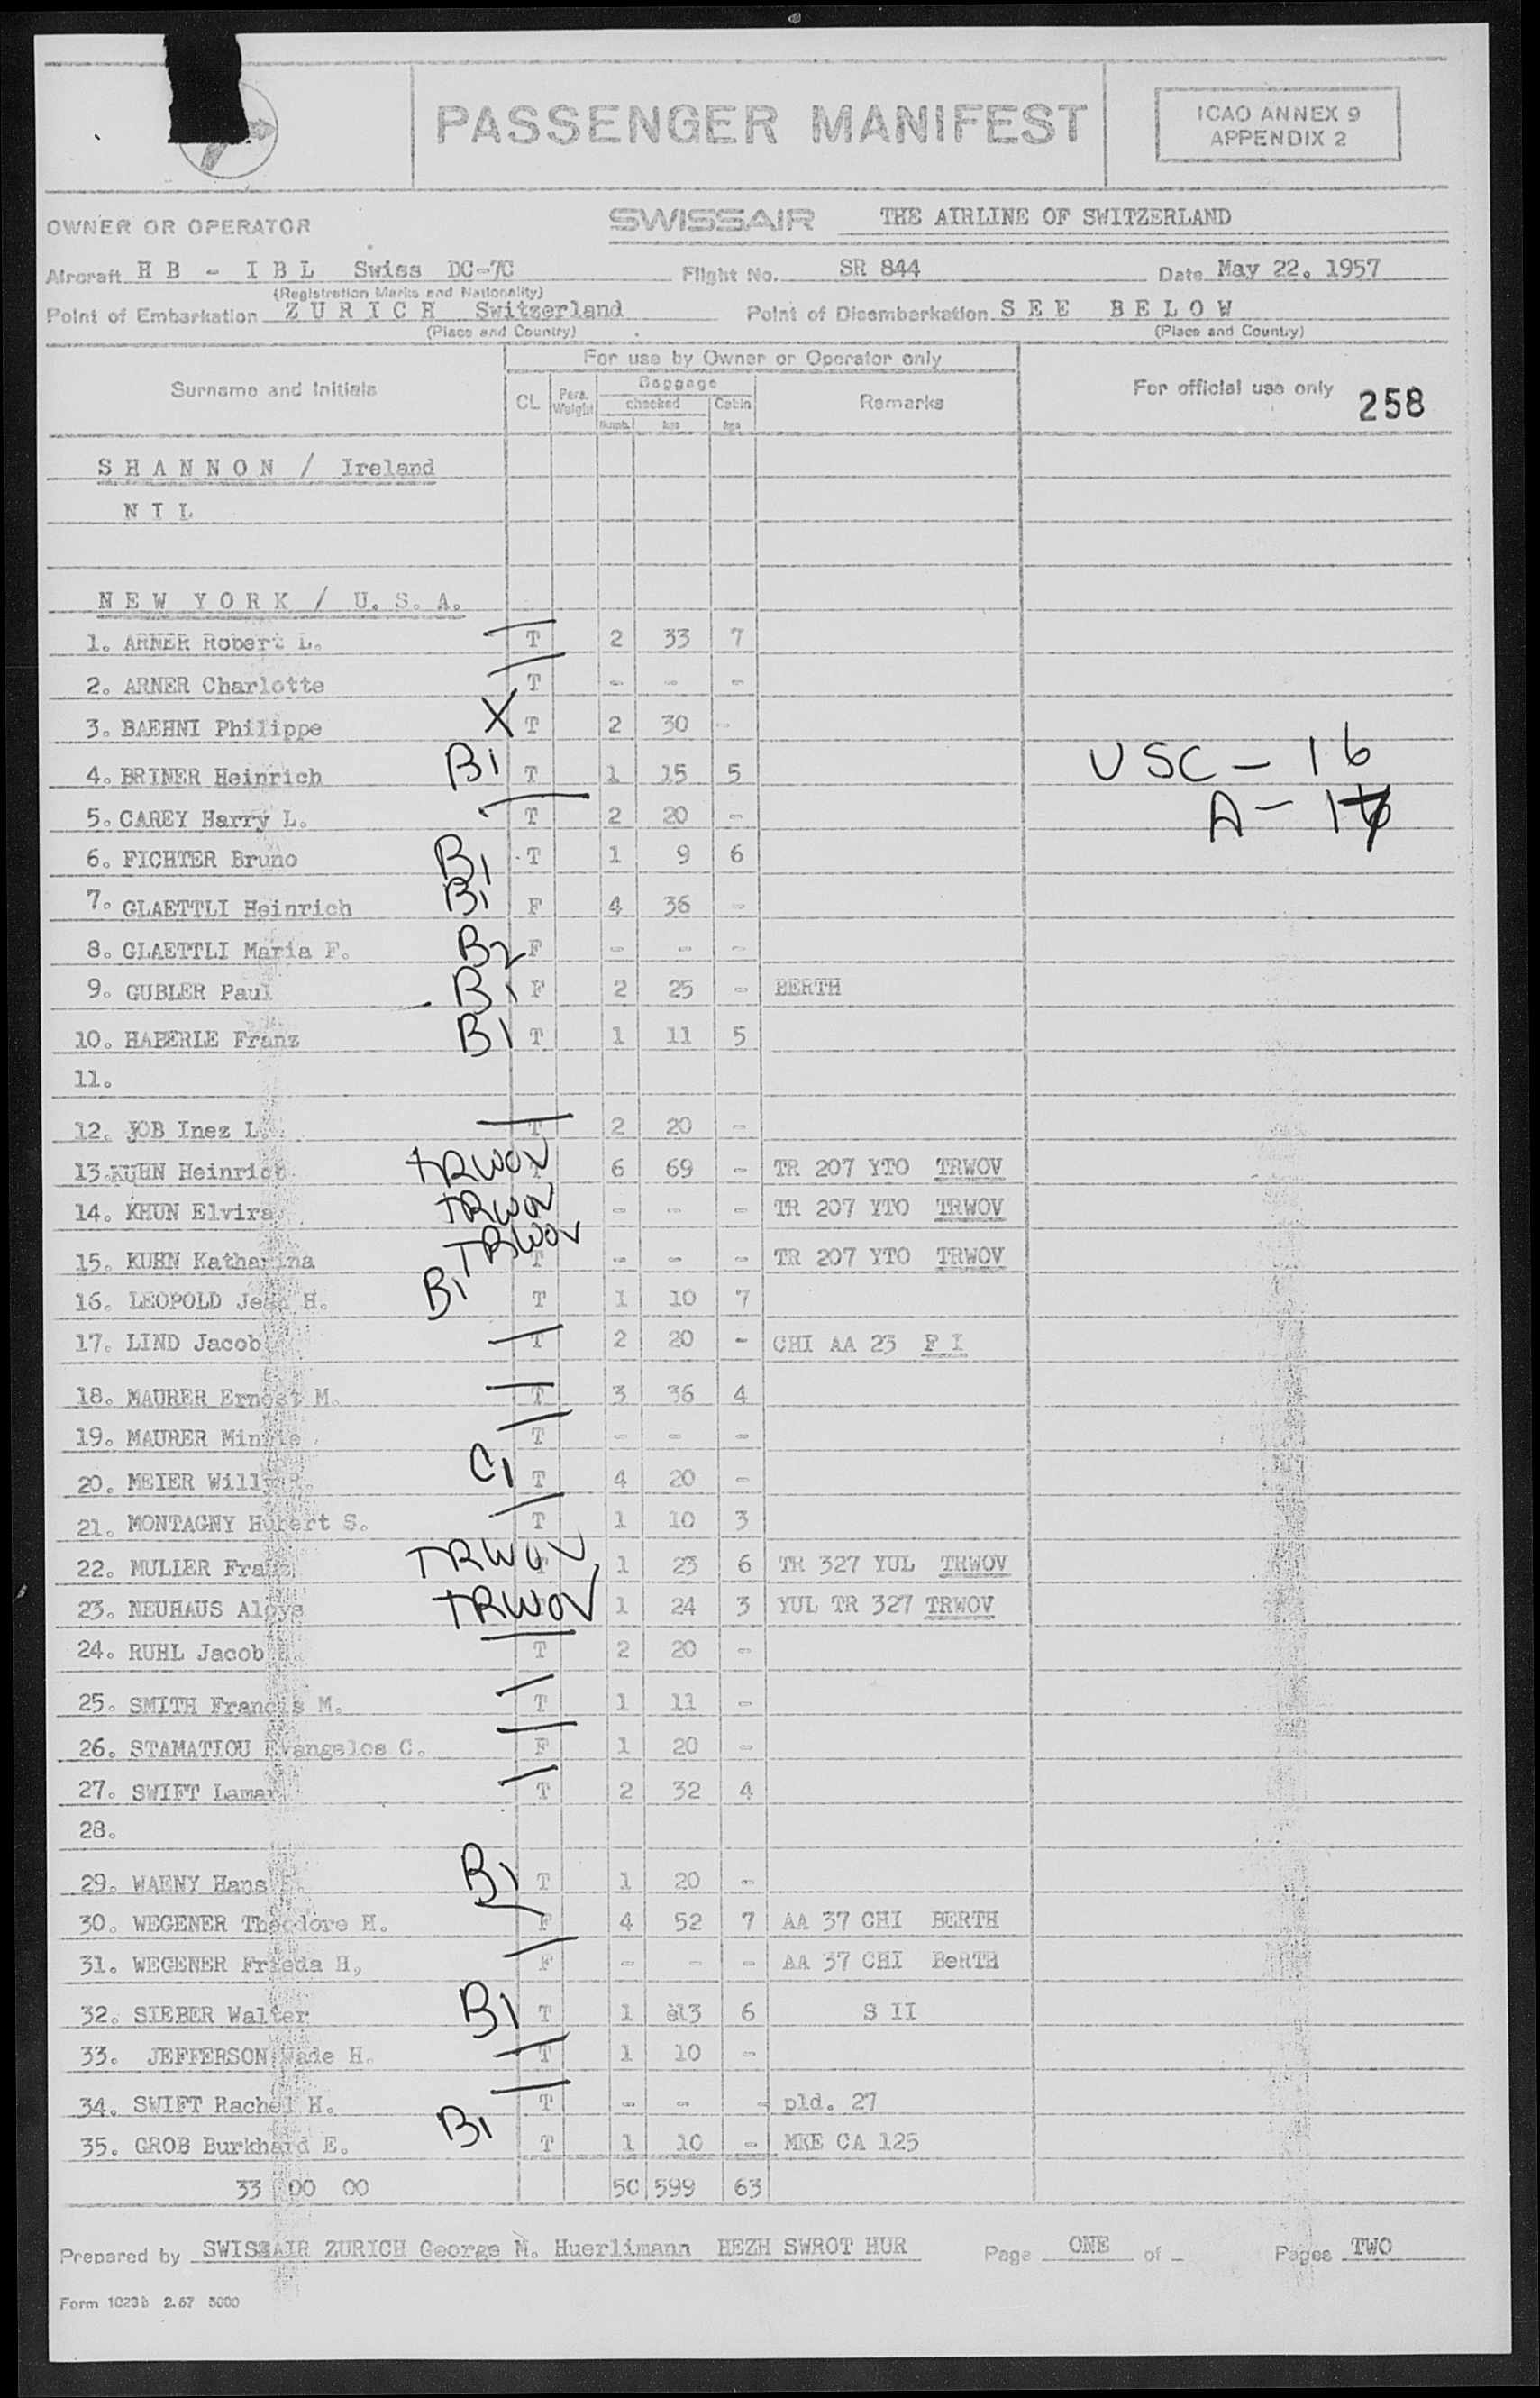 PASSENGER MANIFEST
ICAO ANNEX 9
APPENDIX 2
OWNER OR OPERATOR SWISSAIR THE AIRLINE OF SWITZERLAND
Aircraft H B - I B L Swiss DC-7C Flight No. SR 844 Date May 22. 1957
(Registration Marks and Nationality)
Point of Embarkation Z U R I C H Switzerland Point of Disembarkation S E E B E L O W
(Place and Country) (Place and Country)
For use by Owner or Operator only
Surname and Initials CL Pers. Weight Baggage checked Cabin Numb. kgs kgs Remarks For official use only 258
S H A N N O N / Ireland
N I L
N E W Y O R K / U. S. A.
1. ARNER Robert L. T 2 33 7
2. ARNER Charlotte T - - -
3. BAEHNI Philippe X T 2 30 -
4. BRINER Heinrich B1 T 1 15 5 USC - 16
5. CAREY Harry L. T 2 20 - A - 
6. FICHTER Bruno B1 T 1 9 6
7. GLAETTLI Heinrich B1 F 4 36 -
8. GLAETTLI Maria F. B2 F - - -
9. GUBLER Paul B1 F 2 25 - BERTH
10. HABERLE Franz B1 T 1 11 5
11.
12. JOB Inez L. T 2 20 -
13. KUHN Heinrich TRWOV T 6 69 - TR 207 YTO TRWOV
14. KHUN Elvira TRWOV - - - TR 207 YTO TRWOV
15. KUHN Katharina TRWOV T - - - TR 207 YTO TRWOV
16. LEOPOLD Jean H. B1 T 1 10 7
17. LIND Jacob T 2 20 - CHI AA 23 F I
18. MAURER Ernest M. T 3 36 4
19. MAURER Minnie T - - -
20. MEIER Willy C1 T 4 20 -
21. MONTAGNY Hubert S. T 1 10 3
22. MULLER Franz TRWOV 1 23 6 TR 327 YUL TRWOV
23. NEUHAUS Aloys TRWOV 1 24 3 YUL TR 327 TRWOV
24. RUHL Jacob T 2 20 -
25. SMITH Francis M. T 1 11 -
26. STAMATIOU Evangelos C. F 1 20 -
27. SWIFT Lamar T 2 32 4
28.
29. WAENY Hans B1 T 1 20 -
30. WEGENER Theodore H. F 4 52 7 AA 37 CHI BERTH
31. WEGENER Frieda H, F - - - AA 37 CHI BeRTH
32. SIEBER Walter B1 T 1 13 6 S II
33. JEFFERSON Wade H. T 1 10 -
34. SWIFT Rachel H. T - - - pld. 27
35. GROB Burkhard E. B1 T 1 10 - MKE CA 125
33 00 00 50 599 63
Prepared by SWISSAIR ZURICH George N. Huerlimann HEZH SWROT HUR Page ONE of - Pages TWO
Form 1023b 2.57 5000